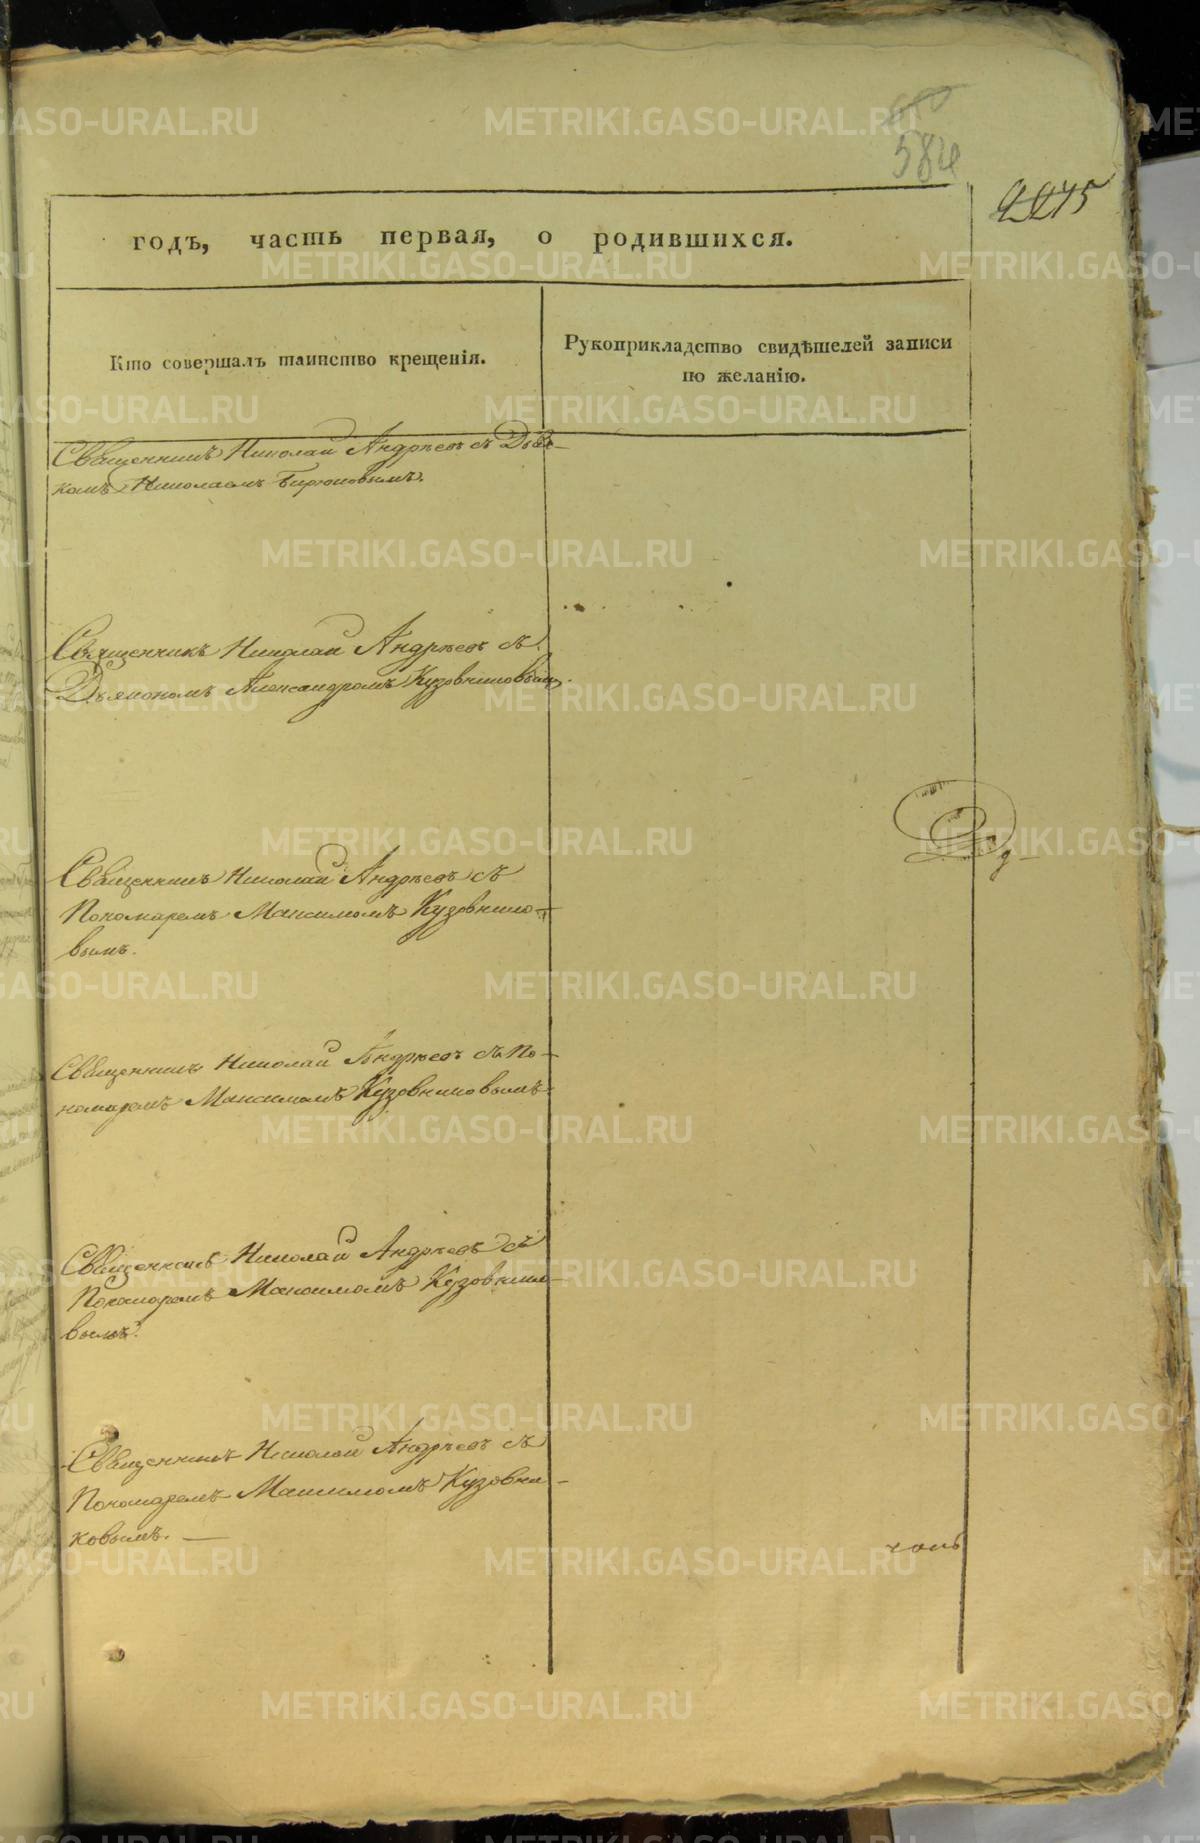 584
2275
годъ, часть первая, о родившихся.
Кто совершалъ таинство крещенія.
Рукоприкладство свидѣтелей записи
по желанію.
Священникъ Николай Андреевъ съ Дьяч-
комъ Николаемъ Бирюковымъ.
Священникъ Николай Андреевъ съ
Дьякономъ Александромъ Кузовниковым.
Священникъ Николай Андреевъ съ
Пономаремъ Максимомъ Кузовнико-
вымъ.
Священникъ Николай Андреевъ съ По-
номаремъ Максимомъ Кузовниковымъ
Священникъ Николай Андреевъ съ
Пономаремъ Максимомъ Кузовнико-
вымъ.
Священникъ Николай Андреевъ съ
Пономаремъ Максимомъ Кузовни-
ковымъ. —
METRIKI.GASO-URAL.RU